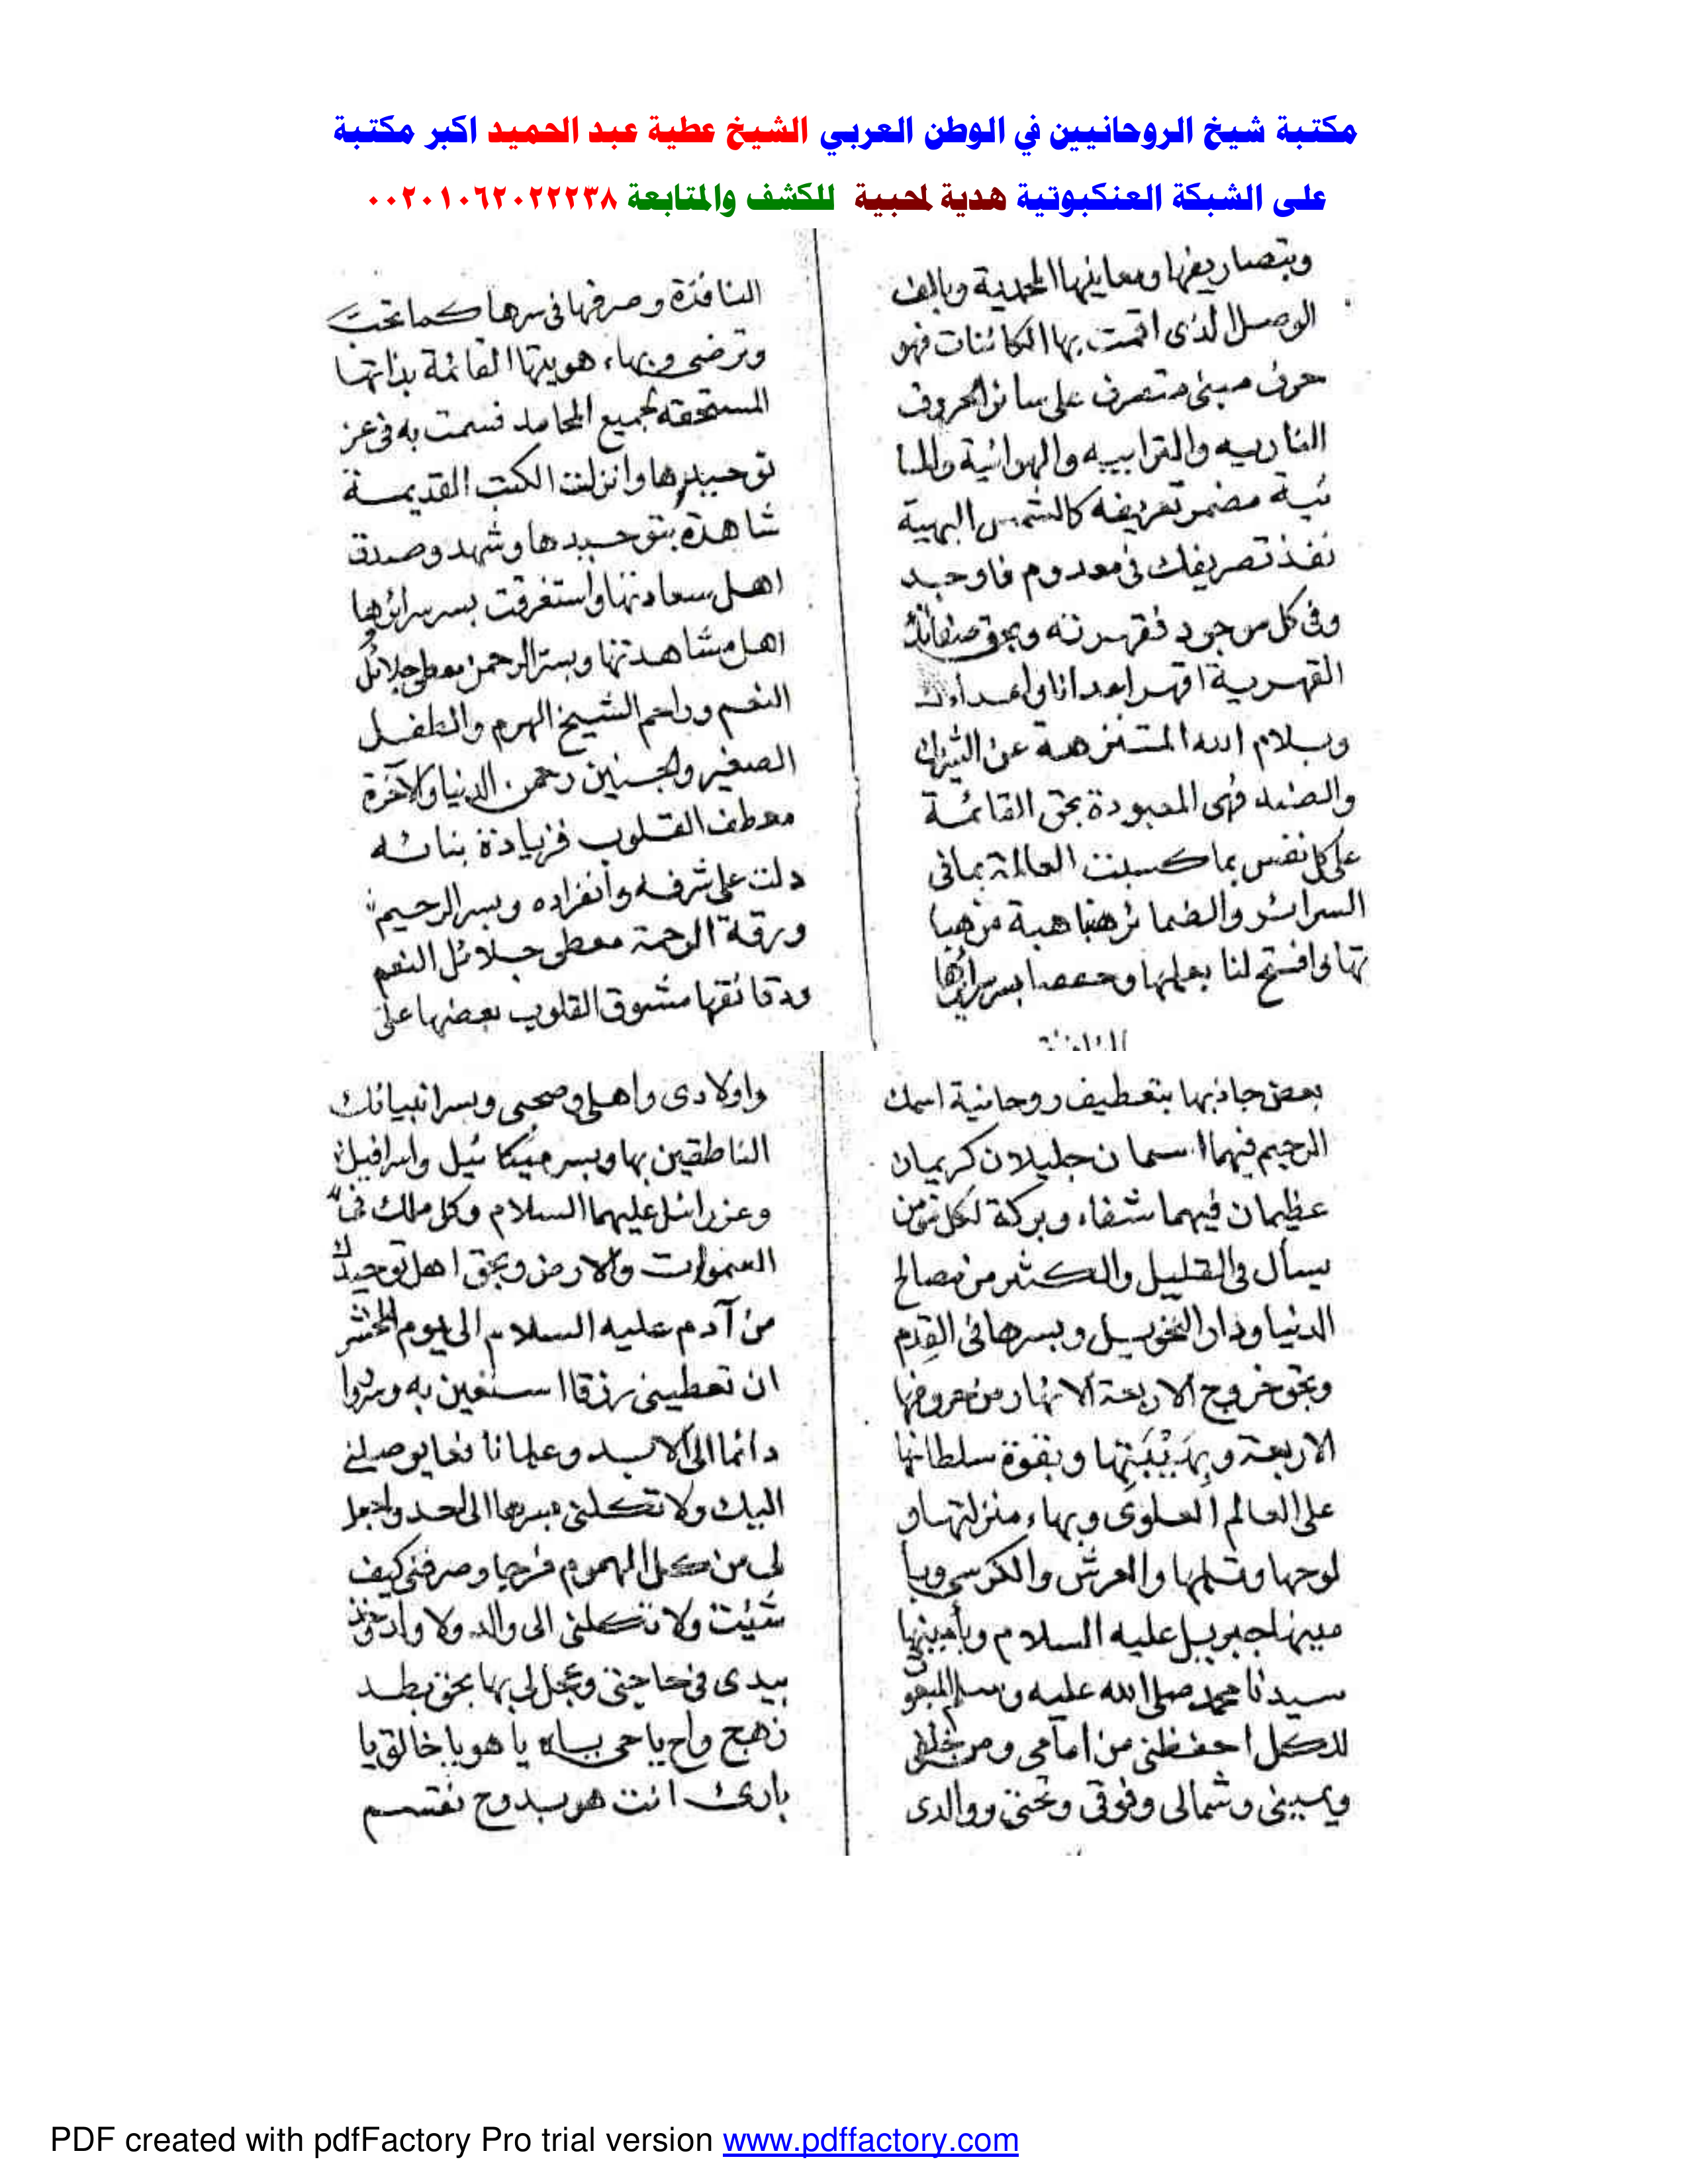 مكتبة شيخ الروحانيين في الوطن العربي الشيخ عطية عبد الحميد اكبر مكتبة
على الشبكة العنكبوتية هدية لمحبية للكشف والمتابعة ٠٠٢٠١٠٦٢٠٢٢٢٣٨
وبتصاريفها ومعاينها المحمدية وبالف
الوصل الذى اقمت بها الكائنات فهو
حرف مبنى متصرف على سائر الحروف
الناريه والترابيه والهوائية والما
ئية مضمر تعريفه كالشمس البهية
نفذ تصريفك فى معدوم فاوجد
وفى كل موجود فقهرته وبحق صفاتك
القهرية اقهر اعدانا واعداءك
وبلام الله المتنزهة عن الشرك
والضد فهى المعبودة بحق القائمة
على كل نفس بما كسبت العالمة بمافى
السرائر والضمائر هبنا هبة من هبا
تها وافتح لنا بعلمها بسر سرائرها
النافذة
النافذة وصرفها فى سرها كما تحب
وترضى وبهاء هويتها القائمة بذاتها
المستحقه لجميع المحامد فسمت به فى عز
توحيدها وانزلت الكتب القديمة
شاهدة بتوحيدها وشهد وصدق
اهل سعادتها واستغرقت بسر سرائرها
اهل مشاهدتها وبسر الرحمن معطى جلائل
النعم وراحم الشيخ الهرم والطفل
الصغير والجنين رحمن الدنيا والآخرة
معطف القلوب فزيادة بنائه
دلت على شرفه وأنفراده وبسر الرحيم
ورقة الرحمة معطى جلائل النعم
ودقائقها مشوق القلوب بعضها على
بعض جاذبها بتعطيف روحانية اسمك
الرحيم فهما اسمان جليلان كريمان
عظيمان فيهما شفاء وبركة لكل مؤمن
يسأل فى القليل والكثير من مصالح
الدنيا ودار التحويل وبسرها فى القدم
وبحق خروج الاربعة الانهار من حروفها
الاربعة وبهيبتها وبقوة سلطانها
على العالم العلوى وبهاء منزلتها و
لوحها وقلمها والعرش والكرسي وبا
مينها جبريل عليه السلام وبأمينها
سيدنا محمد صلى الله عليه وسلم المبعو
للكل احفظنى من امامى ومن خلفى
ويمينى وشمالى وفوقى وتحتى ووالدى
واولادى واهلى وصحبى وبسر انبيائك
الناطقين بها وبسر ميكائيل واسرافيل
وعزرائل عليهما السلام وكل ملك فى
السموات والارض وبحق اهل توحيدك
من آدم عليه السلام الى يوم الحشر
ان تعطينى رزقا استعين به
دائما الى الابد وعلما نافعا يوصلنى
اليك ولا تكلنى بسرها الى احد واجعل
لى من كل الهموم فرجا وصرفنى كيف
شئت ولا تكلنى الى والد ولا ولد وخذ
بيدى فى حاجتى وعجل لى بها بحق بطد
زهج واح ياحى ياه يا هو يا خالق يا
بارئ انت هو بدوح